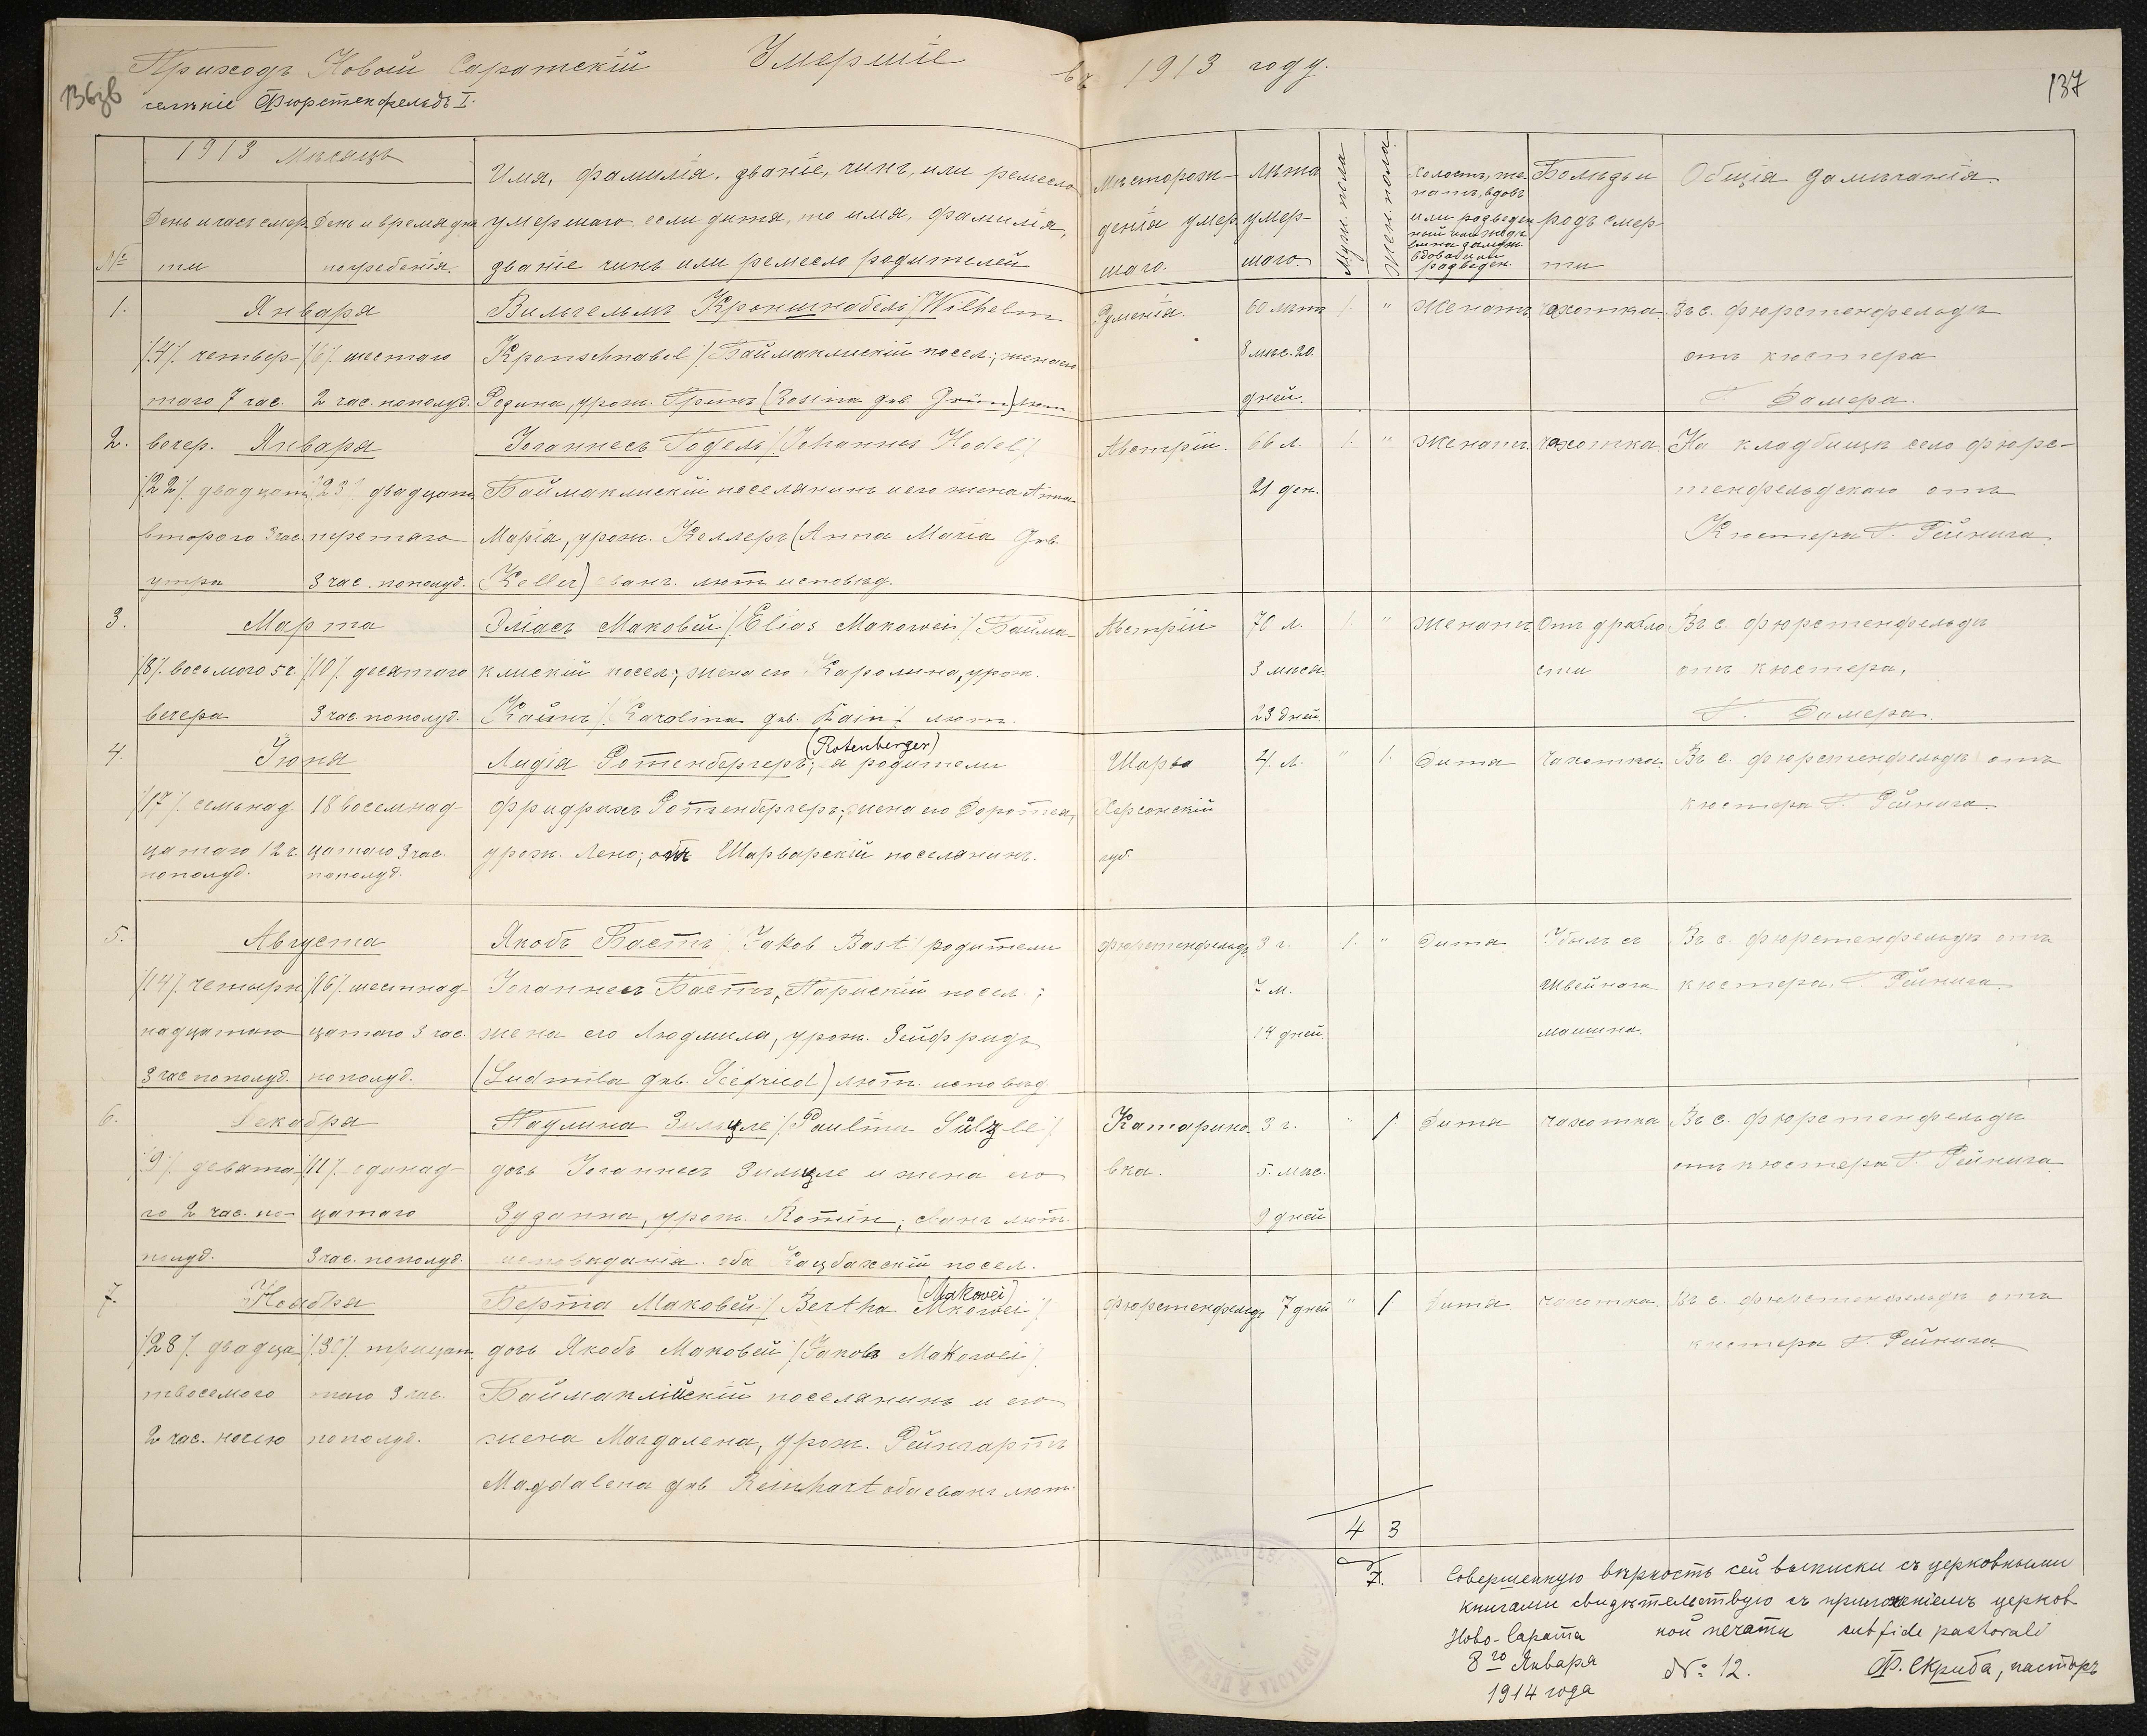 Приходъ Новой Саратскій Умершіе въ 1913 году.
136об
137
селеніе Фюрстенфельдъ I.
1913 Мѣсяцъ
№
День и часъ смерти
День и время дня погребенія.
Имя, фамилія, званіе, чинъ, или ремесло
умершаго если дитя, то имя, фамилія,
званіе чинъ или ремесло родителей
Мѣсторож-
денія умер-
шаго.
Лѣта
умер-
шаго.
Муж. пола
Жен. пола
Холостъ, же-
натъ, вдовъ
или разведен
Болѣзнь и
родъ смер-
ти
Общія замѣчанія.
1.
Января
/4/. четвер-
таго 7 час.
вечер.
/6/. шестаго
2 час. пополуд.
Вильгельмъ Кроншнабель /Wilhelm
Kronschnabel/. Баймаклискій посел.; женатъ
Розина, урож. Гринъ (Rosina geb. Grün) лют.
Румынія.
60 лѣтъ
8 мѣс. 20.
дней.
1. "
Женатъ
чахотка.
Въ с. Фюрстенфельдѣ
отъ кюстера
Г. Замера.
2.
Января
/22/. двадцать
второго 3 час.
утра
/23/. двадцать
третяго
3 час. пополуд.
Іоганнесъ Годель /Johannes Hodel/
Баймаклискій поселянинъ и его жена Анна
Марія, урож. Келлеръ (Anna Maria Geb.
Keller) еванг. лют исповѣд.
Австріи.
66 л.
21 ден.
1. "
Женатъ.
чахотка.
На кладбищѣ село Фюрс-
тенфельдскаго отъ
Кюстера Г. Рейнига.
3.
Марта
/8/. восьмого 5 ч.
вечера
/10/. десятаго
3 час. пополуд.
Эліасъ Маковей /Elias Makowei/ Байма-
клискій посел.; жена его Каролина, урож.
Каинъ /Karolina geb. Kain/ лют.
Австріи
70 л.
3 мѣся.
23 дней.
1. "
Женатъ.
Отъ дряхло
сти
Въ с. Фюрстенфельдѣ
отъ кюстера,
Г. Замера.
4.
Іюня
/17/. семьнад
цатаго 12 ч.
пополуд.
18 восемнад-
цатаго 3 час.
пополуд.
(Rotenberger)
Лидія Ротенбергеръ; а родители
Фридрихъ Ротенбергеръ; жена его Доротея,
урож. Лено; оба Шарварскій поселянинъ.
Шарва
Херсонскій
губ.
4. л.
" 1.
Дитя
Чахотка.
Въ с. Фюрстенфельдѣ отъ
кюстера Г. Рейнига.
5.
Августа
/14/. четырн
надцатаго
3 час пополуд.
/16/. шестнад-
цатаго 3 час.
пополуд.
Якобъ Бастъ /Jakob Bast/ родители
Іоганнесъ Бастъ, Парискій посел.;
жена его Людмила, урож. Зейфридъ
(Ludmila geb. Seifried) лют. исповѣд
Фюрстенфельдъ
3 г.
7 м.
14 дней.
1. "
Дитя
Убылъ съ
швейнага
машина.
Въ с. Фюрстенфельдѣ отъ
кюстера. Г. Рейнига.
6.
Декабря
/9/. девята
го 2 час. по-
полуд.
/11/. одинад-
цатаго
3 час. пополуд.
Паулина Зильцле /Paulina Sülzle/
дочь Іоганнесъ Зильцле и жена его
Зузанна, урож. Ротин; еванг лют.
исповѣданія. оба Кацбахскій посел.
Катарино-
вка.
3 г.
5. мѣс.
9 дней
" 1
Дитя
чахотка
Въ с. Фюрстенфельдѣ
отъ кюстера Г. Рейнига
7.
Ноября
/28/. двадца
твосемого
2 час. ночью
/30/. тридцат
таго 3 час.
пополуд.
(Makovei)
Берта Маковей /Bertha Mkowei/
дочь Якобъ Маковей /Jакоb Makowei/
Баймаклійскій поселянинъ и его
жена Магдалена, урож. Рейнгартъ
Magdalena geb Reinhart оба еванг лют.
Фюрстенфельдъ
7 дней
" 1
Дитя
чахотка.
Въ с. Фюрстенфельдѣ отъ
кюстера Г. Рейнига
4 3
7.
Совершенную вѣрность сей выписки съ церковными
книгами свидѣтельствую съ приложеніемъ церков
Ново-Сарата ной печати sub fide pastorali
8го Января № 12. Ф. Скриба, пасторъ
1914 года